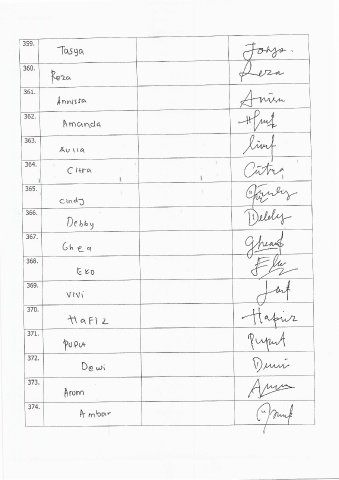 359. Tasya
360. Roza Reza
361. Annisa
362. Amanda
363. Aulia
364. Citra Citra
365. Cindy
366. Debby Debby
367. Ghea Ghea
368. Eko Eko
369. ViVi
370. HaFiz Hapiz
371. PUPUt Puput
372. Dewi Dewi
373. Arum Arum
374. Ambar